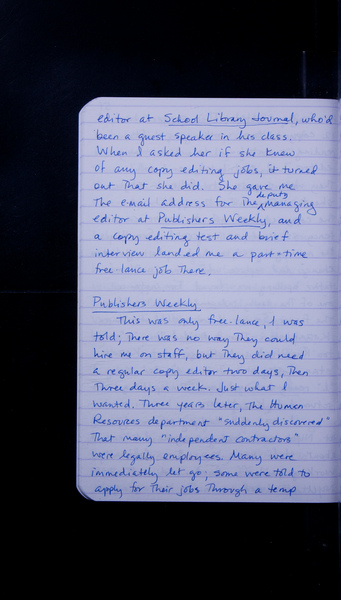 editor at School Library Journal, who'd
been a guest speaker in his class.
When I asked her if she knew
of any copy editing jobs, it turned
out that she did. She gave me
the e-mail address for the deputy managing
editor at Publishers Weekly, and
a copy editing test and brief
interview landed me a part-time
free-lance job there.
Publishers Weekly
This was only free-lance, I was
told; there was no way they could
hire me on staff, but they did need
a regular copy editor two days, then
three days a week. Just what I
wanted. Three years later, the Human
Resources department "suddenly discovered"
that many "independent contractors"
were legally employees. Many were
immediately let go; some were told to
apply for their jobs through a temp